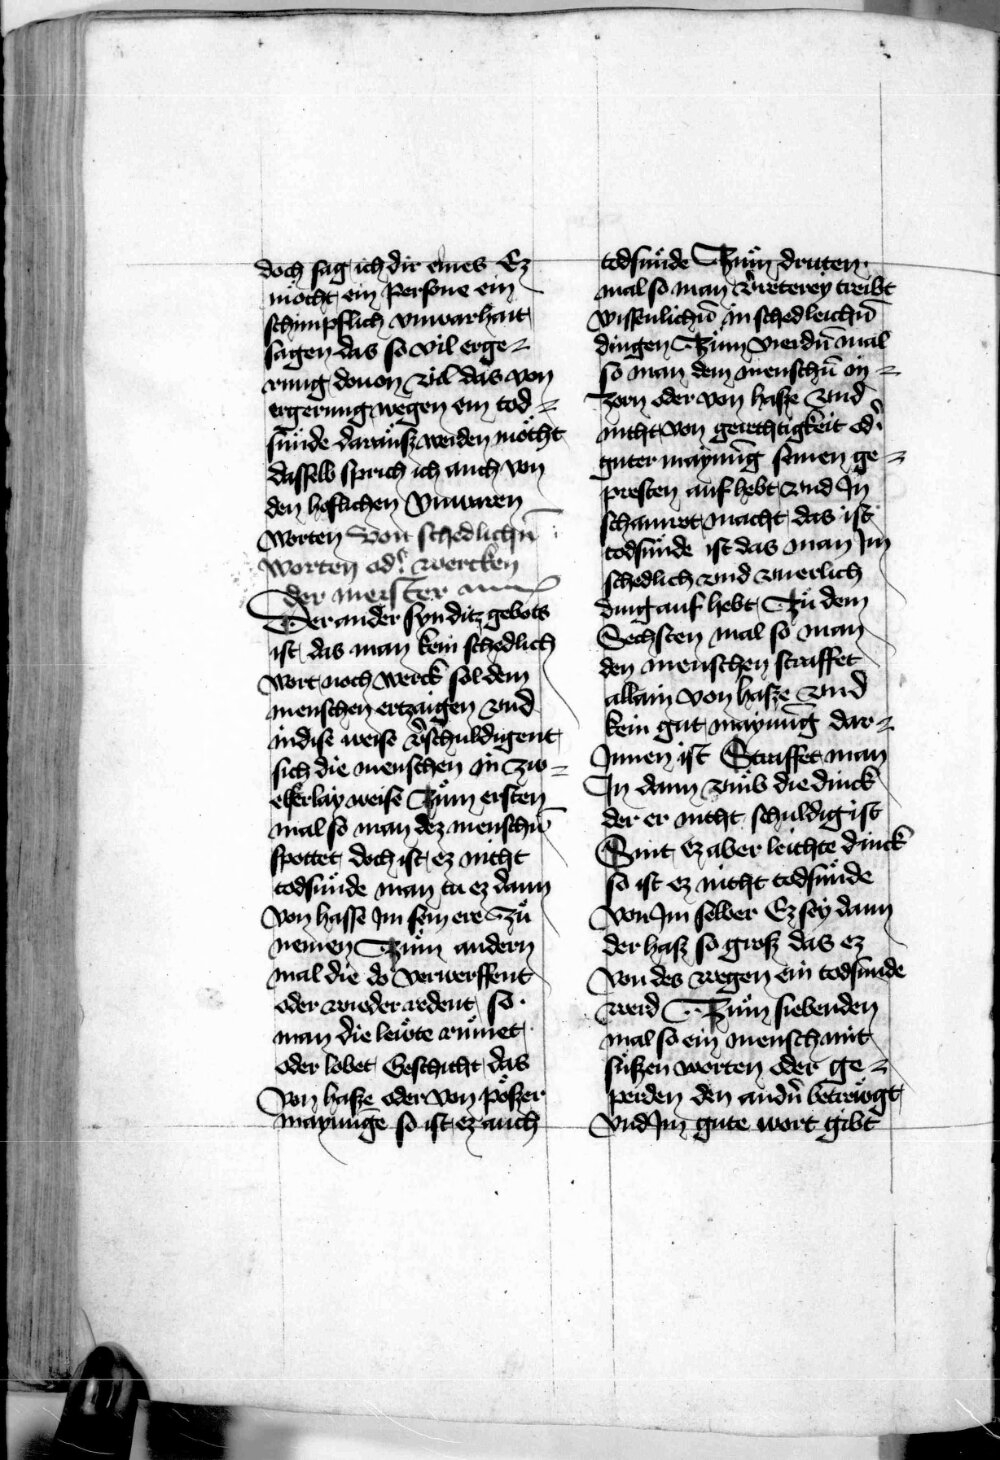 doch sag ich dir eines Ez
möcht ein Persone ein
schimpflich vnwarhait
sagen das so vil erge⸗
rung douon vil das von
ergerung wegen ein tod⸗
sünde darauſz werden möcht
dasselb sprich ich auch von
den hoflichen Vnwaren
worten Von schedlichn̄
worten od' wercken
der meister
Der ander syn ditz gebots
ist das man kein schedlich
wort noch werck sol dem
menschen ertzaigen vnd
in dise weise v'schuldigent
sich die menschen in zw⸗
elferlay weise Zům ersten
mal so man dez menschn̄
spottet doch ist ez nicht
todsünde man tu ez dann
von hasse Im sein ere Zů
nemen Zům andern
mal die do verwerffent
oder wider redent so
man die lewte rümet
oder lobet Geschicht das
Von hasze oder von pöszer
maynunge so ist ez auch
todsünde Zům dritten
mal so man v'reterey treibt
wissenlichn̄ in schedleichn̄
dingen Zům Vierdn̄ mal
so man dem menschn̄ in⸗
zorn oder von hasze vnd
nicht von gerechtigkeit od'
guter maynūg seinen ge⸗
presten auf hebt vnd In
schamrot macht das ist
todsünde ist das man Im
schedlich vnd vnerlich
ding auf hebt Zů dem
Sechsten mal so man
den menschen straffet
allain von hasze vnd
kein gut maynūg dar⸗
Innen ist Straffet man
In dann vmb die dinck
der er nicht schuldig ist
Sint ez aber leichte dinck
so ist ez nicht todsünde
Von Im selber Ez sey dann
der hasz so grosz das ez
von des wegen ein todsünde
werd Zům siebenden
mal so ein mensch mit
süszen worten oder ge⸗
perden den andn̄ betrewgt
Vnd Im gute wort gibt